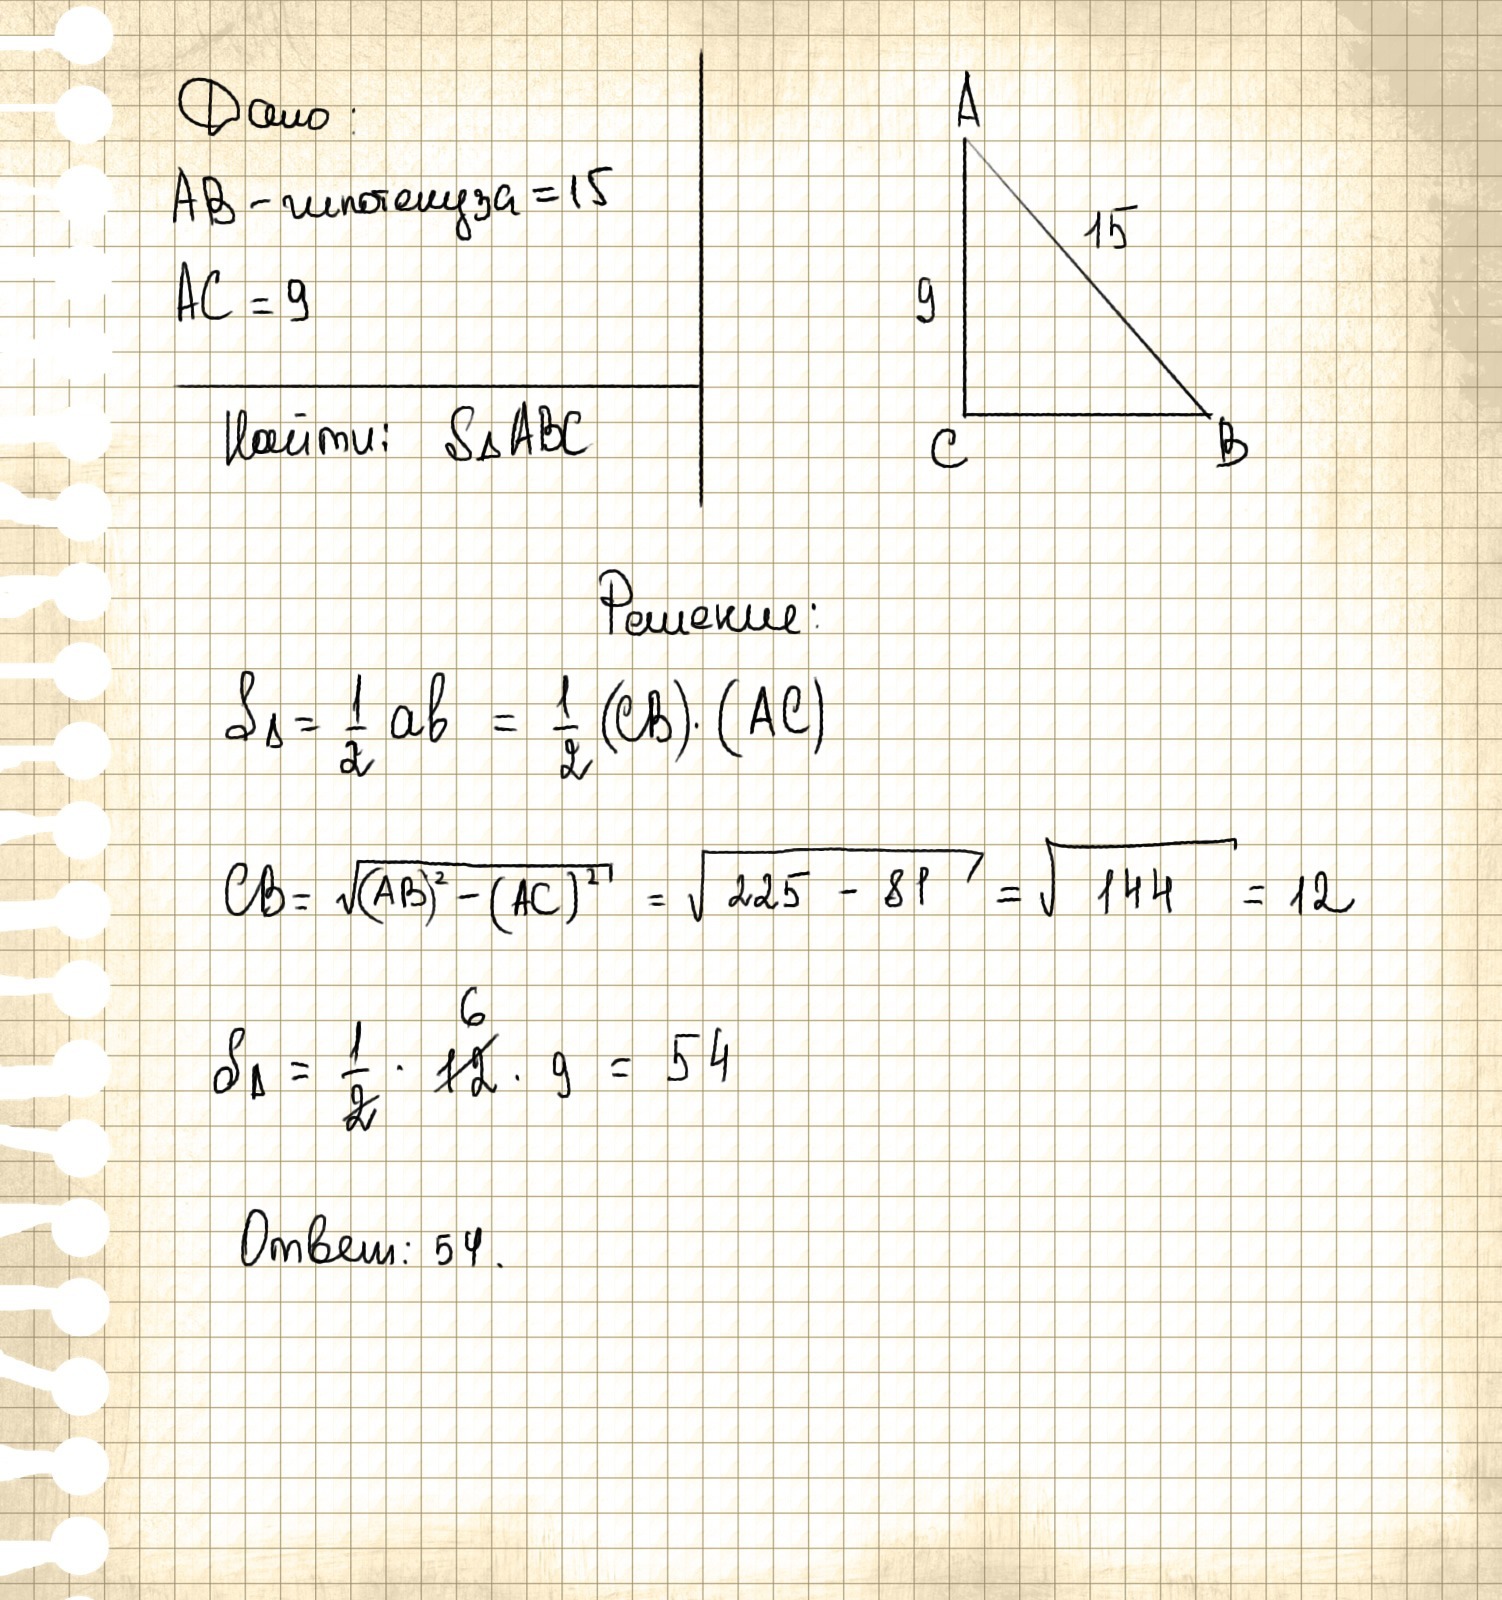 Дано:
AB - гипотенуза = 15
AC = 9
Найти: S△ABC
A
15
9
C
B
Решение:
S△ = 1/2 ab = 1/2 (CB) · (AC)
CB = √((AB)² - (AC)²) = √(225 - 81) = √144 = 12
6
S△ = 1/2 · 12 · 9 = 54
Ответ: 54.